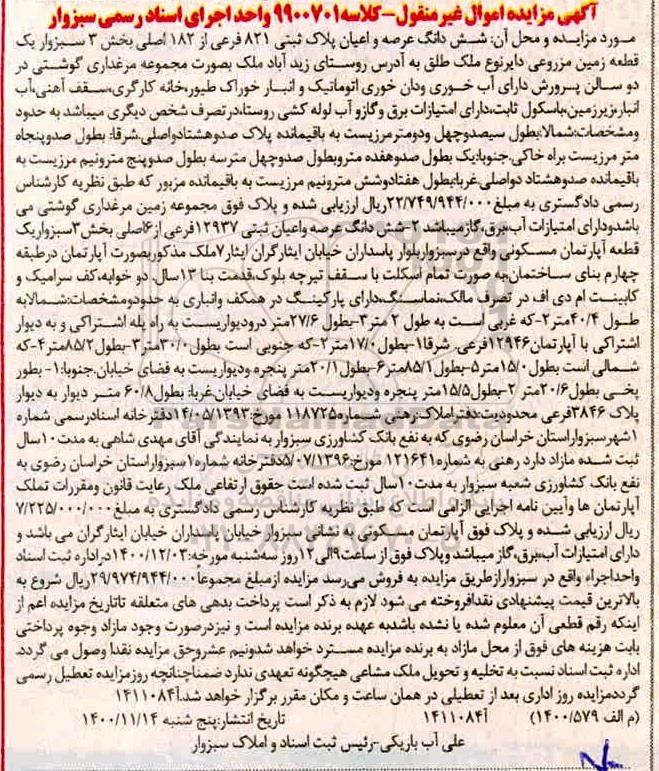 آگهی مزایده اموال غیرمنقول-کلاسه۹۹۰۰۷۰۱ واحد اجرای اسناد رسمی سبزوار
مورد مزایده و محل آن: شش دانگ عرصه و اعیان پلاک ثبتی ۸۲۱ فرعی از ۱۸۲ اصلی بخش ۳ سبزوار یک
قطعه زمین مزروعی دایرنوع ملک طلق به آدرس روستای زید آباد ملک بصورت مجموعه مرغداری گوشتی در
دو سالن پرورش دارای آب خوری ودان خوری اتوماتیک و انبار خوراک طیور،خانه کارگری،سقف آهنی،آب
انبار،زیرزمین،باسکول ثابت،دارای امتیازات برق و گازو آب لوله کشی روستا،درتصرف شخص دیگری میباشد به حدود
ومشخصات:شمالا:بطول سیصدوچهل ودومترمرزیست به باقیمانده پلاک صدوهشتادواصلی.شرقا: بطول صدوپنجاه
متر مرزیست براه خاکی.جنوبا:یک بطول صدوهفده متروبطول صدوچهل مترسه بطول صدوپنج مترونیم مرزیست به
باقیمانده صدوهشتاد دواصلی.غربا:بطول هفتادوشش مترونیم مرزیست به باقیمانده مزبور که طبق نظریه کارشناس
رسمی دادگستری به مبلغ۲۲/۷۴۹/۹۴۴/۰۰۰ریال ارزیابی شده و پلاک فوق مجموعه زمین مرغداری گوشتی می
باشدودارای امتیازات آب،برق،گازمیباشد ۲-شش دانگ عرصه واعیان ثبتی ۱۲۹۳۷فرعی از۶اصلی بخش۳سبزواریک
قطعه آپارتمان مسکونی واقع درسبزواربلوار پاسداران خیابان ایثارگران ایثار۷ملک مذکوربصورت آپارتمان درطبقه
چهارم بنای ساختمان،به صورت تمام اسکلت با سقف تیرچه بلوک،قدمت بنا ۱۳سال. دو خوابه،کف سرامیک و
کابینت ام دی اف در تصرف مالک،نماسنگ،دارای پارکینگ در همکف وانباری به حدودومشخصات:شمالابه
طول ۴۰/۴متر۲-که غربی است به طول ۲ متر۳-بطول ۲۷/۶متر درودیواریست به راه پله اشتراکی و به دیوار
اشتراکی با آپارتمان۱۲۹۴۶فرعی. شرقا۱-بطول۱۷/۰متر۲-که جنوبی است بطول۳۰/۰متر۳-بطول۸۵/۲متر۴-که
شمالی است بطول۱۵/۰متر۵-بطول۸۵/۱متر۶-بطول۲۰/۱متر پنجره ودیواریست به فضای خیابان.جنوبا:۱- بطور
پخی بطول۲۰/۶متر ۲-بطول۱۵/۵متر پنجره ودیواریست به فضای خیابان.غربا: بطول۶۰/۸ متر دیوار به دیوار
پلاک ۳۸۴۶فرعی محدودیت:دفتراملاک:رهنی شماره۱۱۸۷۲۵ مورخ:۱۴/۰۵/۱۳۹۳دفترخانه اسنادرسمی شماره
۱شهرسبزواراستان خراسان رضوی که به نفع بانک کشاورزی سبزوار به نمایندگی آقای مهدی شاهی به مدت۱۰سال
ثبت شده مازاد دارد رهنی به شماره۱۲۱۶۴۱ مورخ:۵/۰۷/۱۳۹۶دفترخانه شماره۱سبزواراستان خراسان رضوی به
نفع بانک کشاورزی شعبه سبزوار به مدت۱۰سال ثبت شده است حقوق ارتفاعی ملک رعایت قانون ومقررات تملک
آپارتمان ها وآیین نامه اجرایی الزامی است که طبق نظریه کارشناس رسمی دادگستری به مبلغ۷/۲۲۵/۰۰۰/۰۰۰
ریال ارزیابی شده و پلاک فوق آپارتمان مسکونی به نشانی سبزوار خیابان پاسداران خیابان ایثارگران می باشد و
دارای امتیازات آب،برق،گاز میباشد وپلاک فوق از ساعت۹الی۱۲روز سه‌شنبه مورخه:۱۴۰۰/۱۲/۰۳دراداره ثبت اسناد
واحداجراء واقع در سبزوارازطریق مزایده به فروش می‌رسد مزایده ازمبلغ مجموعاً۲۹/۹۷۴/۹۴۴/۰۰۰ریال شروع به
بالاترین قیمت پیشنهادی نقدافروخته می شود لازم به ذکر است پرداخت بدهی های متعلقه تاتاریخ مزایده اعم از
اینکه رقم قطعی آن معلوم شده یا نشده باشدبه عهده برنده مزایده است و نیزدرصورت وجود مازاد وجوه پرداختی
بابت هزینه های فوق از محل مازاد به برنده مزایده مسترد خواهد شدونیم عشروحق مزایده نقدا وصول می گردد.
اداره ثبت اسناد نسبت به تخلیه و تحویل ملک مشاعی هیچگونه تعهدی ندارد ضمناچنانچه روزمزایده تعطیل رسمی
گرددمزایده روز اداری بعد از تعطیلی در همان ساعت و مکان مقرر برگزار خواهد شد.آ۱۴۱۱۰۸۴
(م الف ۱۴۰۰/۵۷۹) آ۱۴۱۱۰۸۴ تاریخ انتشار:پنج شنبه ۱۴۰۰/۱۱/۱۴
علی آب باریکی-رئیس ثبت اسناد و املاک سبزوار